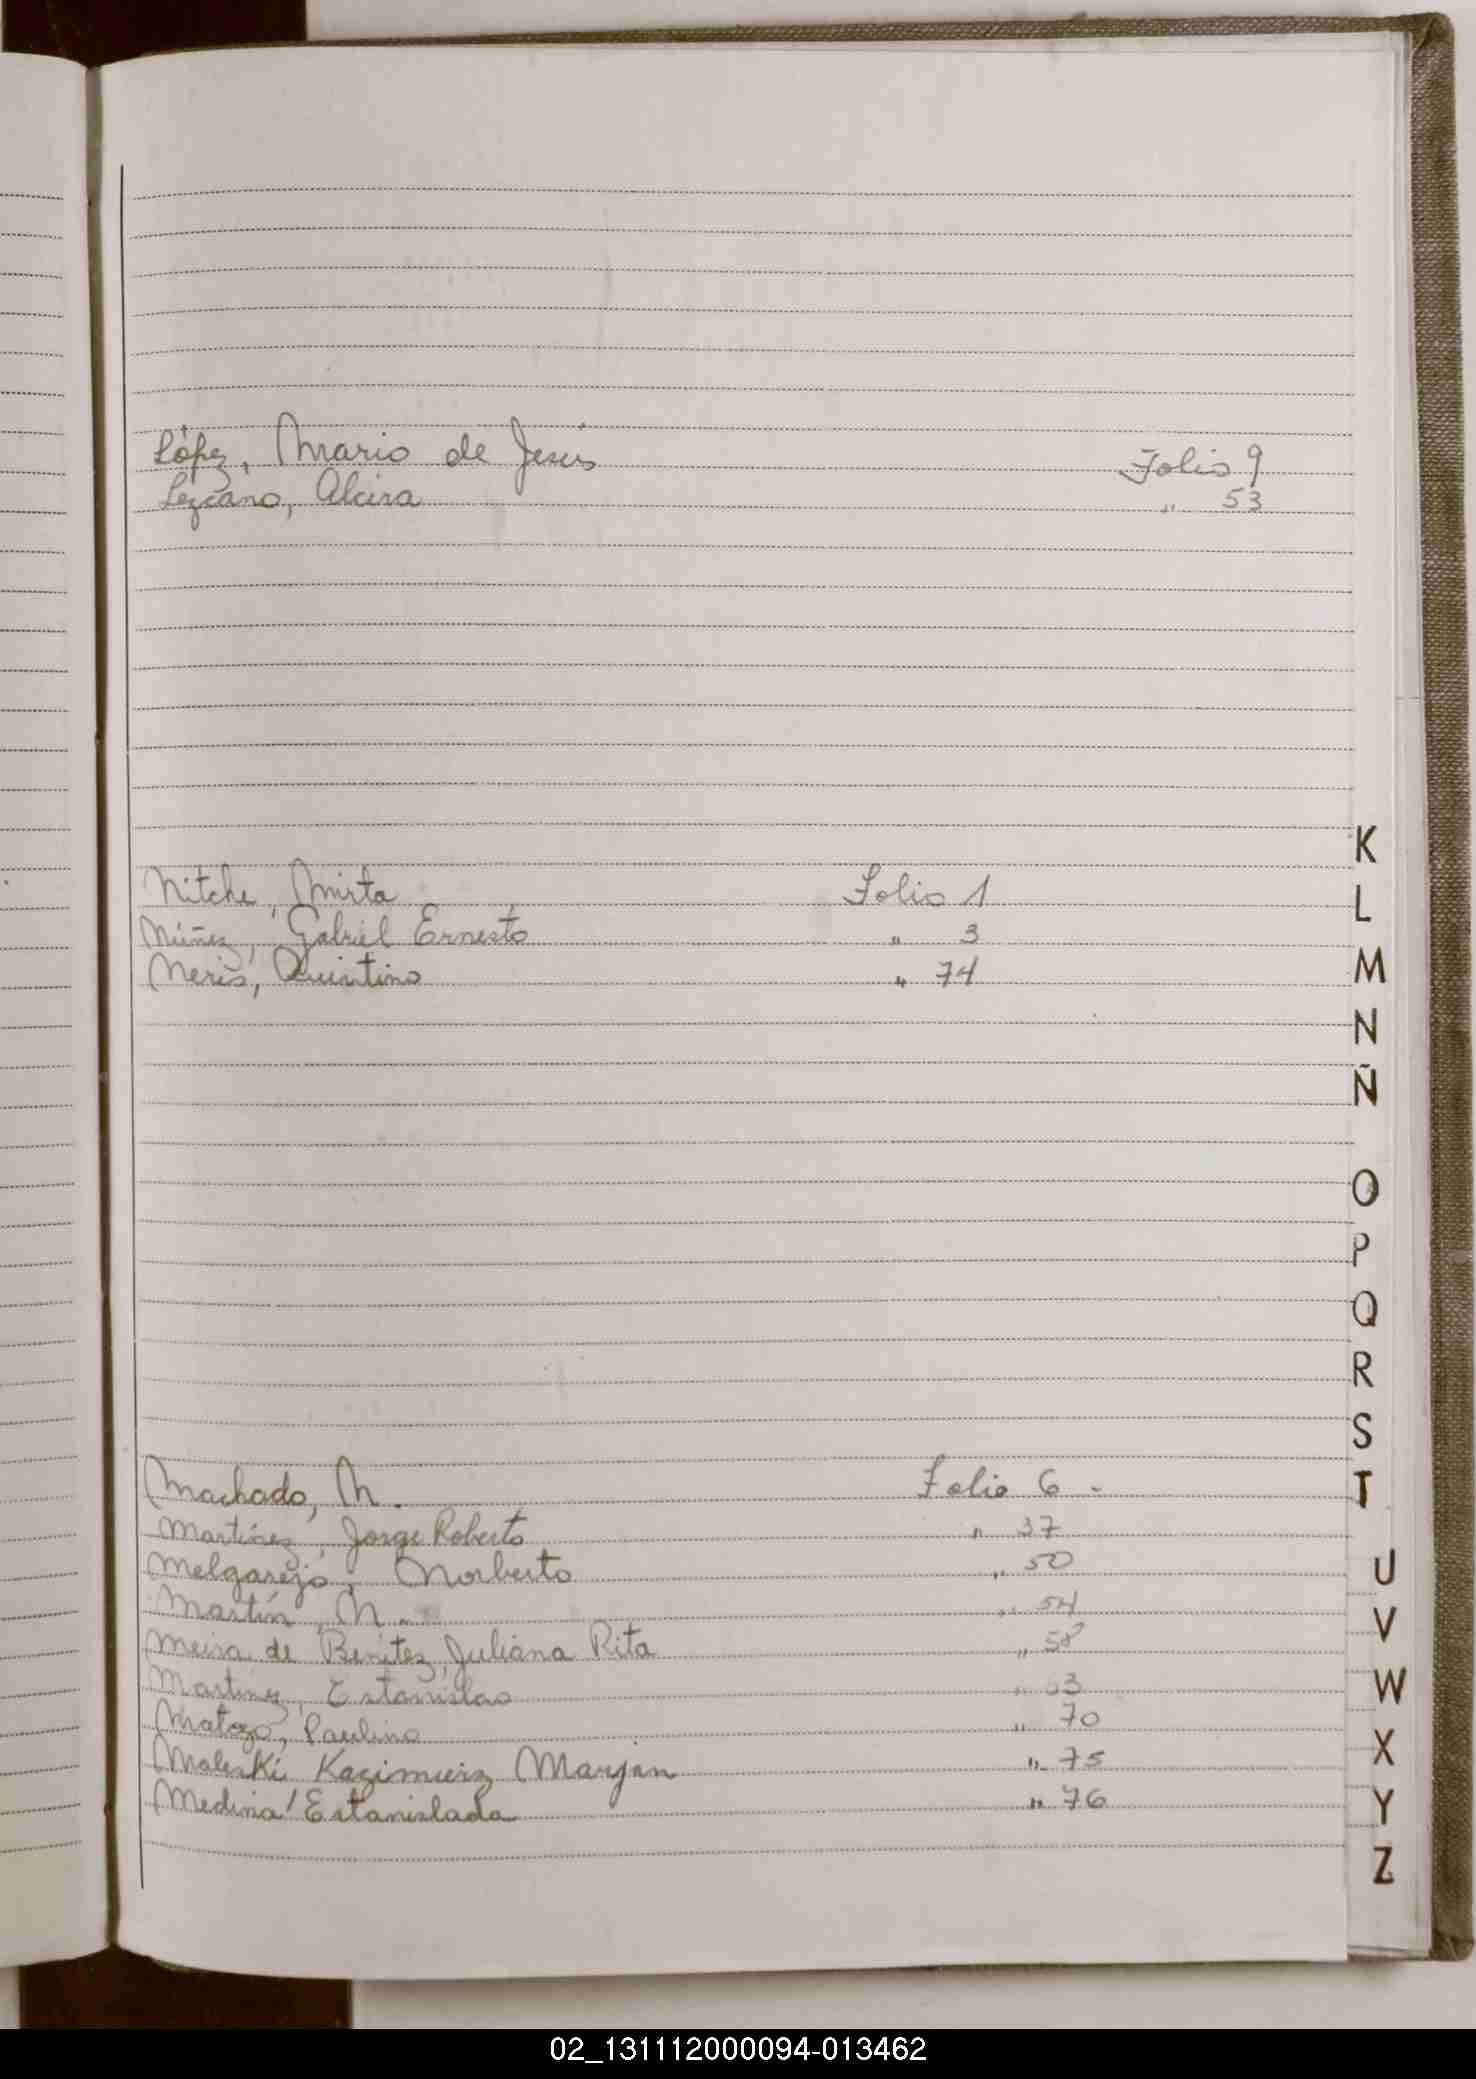 López, Mario de Jesús Folio 9
Lezcano, Alcira " 53
Nitche, Mirta Folio 1
Núñez, Gabriel Ernesto " 3
Neris, Quintino " 74
Machado, M. Folio 6 -
Martínez, Jorge Roberto " 37
Melgarejo, Norberto " 50
Martín, M. " 54
Meira de Benítez, Juliana Rita " 58
Martínez, Estanislao " 63
Matozo, Paulino " 70
Maleski Kazimierz Marjan " 75
Medina, Estanislada " 76
K
L
M
N
Ñ
O
P
Q
R
S
T
U
V
W
X
Y
Z
02_131112000094-013462